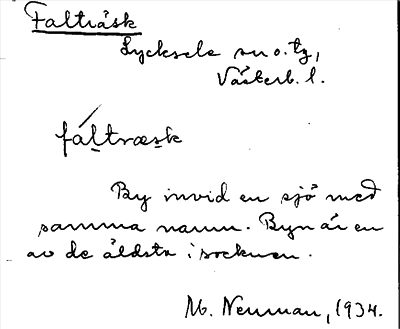 Falträsk
Lycksele sn o. tg,
Västerb. l.
fáltræsk
By invid en sjö med
samma namn. Byn är en
av de äldsta i socknen.
M. Nenman, 1934.